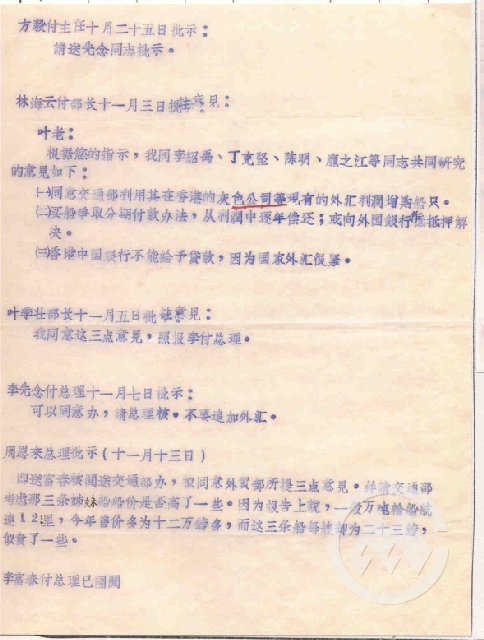 方毅付主任十月二十五日批示：
請送先念同志批示。
林海云付部长十一月三日批注意見：
叶老：
根据您的指示，我同李紹禹、丁克坚、陈明、廬之江等同志共同研究
的意见如下：
㈠同意交通部利用其在香港的灰色公司等现有的外汇利潤增购船只。
㈡买船爭取分期付款办法，从利潤中逐年偿还；或向外國銀行作抵押解
决。
㈢香港中国银行不能給予貸款，因为国家外汇很緊。
叶季壮部长十一月五日批註意見：
我同意这三点意见，照报李付总理。
李先念付总理十一月七日批示：
可以同意办，請总理核。不要追加外汇。
周恩来总理批示（十一月十三日）
即送富春核閱送交通部办，仅同意外贸部所提三点意见。并請交通部
考虑那三条姊妹船船价是否高了一些。因为报告上說，一般万吨輪船航
速12浬，今年售价多为十二万鎊多，而这三条船每艘却为二十三鎊，
似貴了一些。
李富春付总理已圈閱